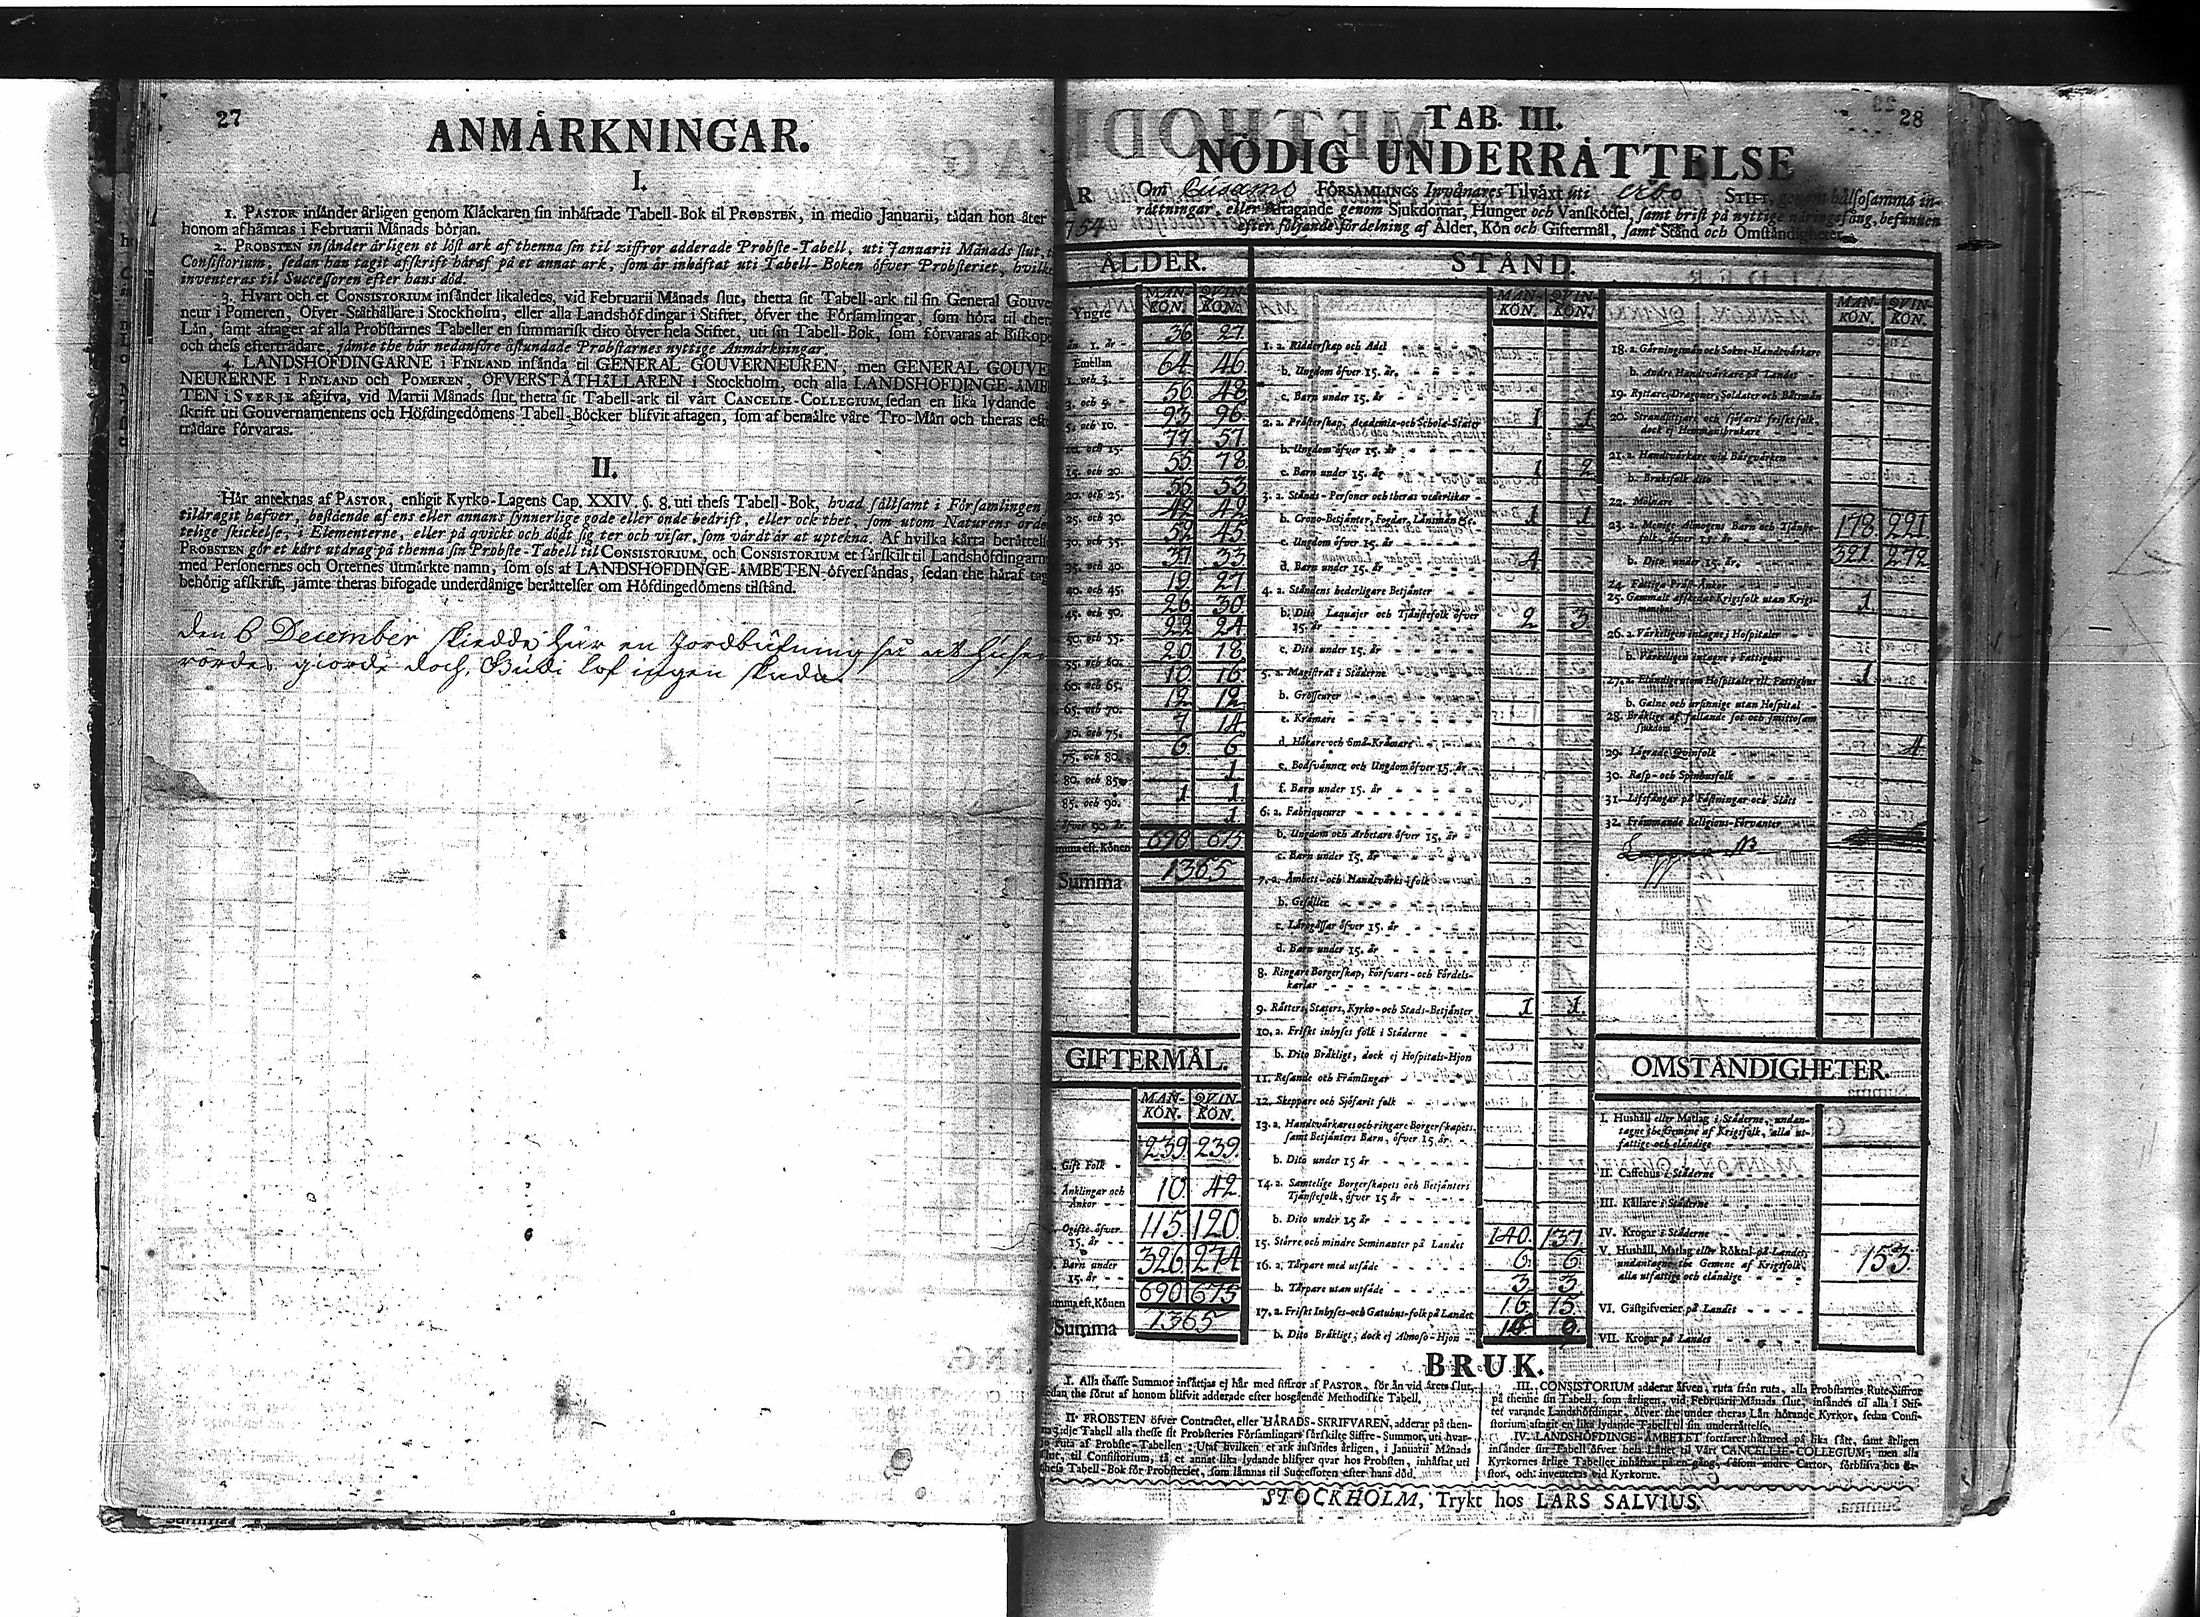 27
ANMÅRKNINGAR.
I.
1. PASTOR insånder årligen genom Klåckaren sin inhåftade Tabell-Bok til PROBSTEN, in medio Januarii, tådan hon åter
honom afhåmtas i Februarii Månads början.
2. PROBSTEN insånder årligen et löst ark af thenna sin til ziffror adderade Probste-Tabell, uti Januarii Månads slut,
Consistorium, sedan han tagit afskrift håraf på et annat ark, som år inhåftat uti Tabell-Boken öfver Probsteriet, hvilke
inventeras til Successoren efter hans död.
3. Hvart och et CONSISTORIUM insånder likaledes, vid Februarii Månads slut, thetta sit Tabell-ark til sin General Gouver
neur i Pomeren, Öfver-Ståthållare i Stockholm, eller alla Landshöfdingar i Stiftet, öfver the Församlingar, som höra til ther
Lån, samt aftager af alla Probstarnes Tabeller en summarisk dito öfver hela Stiftet, uti sin Tabell-Bok, som förvaras af Biskop
och thess eftertrådare, jämte the hår nedanföre åstundade Probstarnes nyttige Anmårkningar.
4. LANDSHÖFDINGARNE i FINLAND insånda til GENERAL GOUVERNEUREN, men GENERAL GOUVE
NEURERNE i FINLAND och POMEREN, ÖFVERSTÅTHÅLLAREN i Stockholm, och alla LANDSHÖFDINGE-ÅMBE
TEN i SVERJE afgifva, vid Martii Månads slut, thetta sit Tabell-ark til vårt CANCELIE-COLLEGIUM, sedan en lika lydande
skrift uti Gouvernamentens och Höfdingedömens Tabell-Böcker blifvit aftagen, som af bemålte våre Tro-Mån och theras efte
trådare förvaras.
II.
Hår anteknas af PASTOR, enligit Kyrko-Lagens Cap. XXIV. §. 8. uti thess Tabell-Bok, hvad sållsamt i Församlingen
tildragit hafver, bestående af ens eller annans synnerlige gode eller onde bedrift, eller ock thet, som utom Naturens orde
telige skickelse, i Elementerne, eller på qvickt och dödt sig ter och visar, som vårdt år at uptekna. Af hvilka kårta beråttelse
PROBSTEN gör et kårt utdrag på thenna sin Probste-Tabell til CONSISTORIUM, och CONSISTORIUM et sårskilt til Landshöfdingarn
med Personernes och Orternes utmårkte namn, som oss af LANDSHÖFDINGE-ÅMBETEN öfversåndas, sedan the håraf tag
behörig afskrift, jämte theras bifogade underdånige beråttelser om Höfdingedömens tilstånd.
den 6 December skiedde hår en Jordbäfning så at husen
rördes giorde doch, Gudi lof ingen skada.
28
TAB. III.
NÖDIG UNDERRÅTTELSE
ÅR Om Cusamo FÖRSAMLINGS Invånares Tilvåxt uti Åbo STIFT, genom hålsosamma in-
754 råttningar, eller Aftagande genom Sjukdomar, Hunger och Vanskötsel, samt brist på nyttige näringsfång, befunnen
efter följande fördelning af Ålder, Kön och Giftermål, samt Stånd och Omståndigheter.
ÅLDER.
MAN-KÖN. QVIN-KÖN.
Yngre än 1. år - 36 27
Emellan 1. och 3. - 64 46
3. och 5. - 56 48
5. och 10. - 93 96
10. och 15. 77 57
15. och 20. 55 78
20. och 25. 55 53
25. och 30. 42 49
30. och 35. 52 45
35. och 40. 31 33
40. och 45. 19 27
45. och 50. 26 30
50. och 55. 22 24
55. och 60. 20 18
60. och 65. 10 16
65. och 70. 12 12
70. och 75. 7 14
75. och 80. 6 6
80. och 85. 1
85. och 90. 1 1
öfver 90. år. 1
Summa eft. Könen 690 675
Summa 1365
GIFTERMÅL.
MAN-KÖN. QVIN-KÖN.
Gift Folk - 239 239
Ånklingar och Ånkor - - 10 42
Ogifte öfver 15. år - - 115 120
Barn under 15. år - - 326 274
Summa eft. Könen 690 675
Summa 1365
STÅND.
MAN-KÖN. QVIN-KÖN.
1. a. Ridderskap och Adel
b. Ungdom öfver 15. år.
c. Barn under 15. år
2. a. Pråsterskap, Academiæ-och Scholæ-Stater 1 1
b. Ungdom öfver 15. år
c. Barn under 15. år 1 2
3. a. Stånds-Personer och theras vederlikar
b. Crono-Betjänter, Fogdar, Lånsmån &c. 1 1
c. Ungdom öfver 15. år
d. Barn under 15. år 4
4. a. Ståndens hederligare Betjänter
b. Dito Laquajer och Tjånstefolk öfver 15. år 2 3
c. Dito under 15. år
5. a. Magistrat i Ståderne
b. Grosseurer
c. Kråmare
d. Hökare och Små-Kråmare
e. Bodsvånner och Ungdom öfver 15. år
f. Barn under 15. år
6. a. Fabriqueurer
b. Ungdom och Arbetare öfver 15. år
c. Barn under 15. år
7. a. Åmbets-och Handtvårks-folk
b. Gesåller
c. Lårogåssar öfver 15. år
d. Barn under 15. år
8. Ringare Borgerskap, Försvars-och Fördels-karlar
9. Råtters, Staters, Kyrko-och Stads-Betjänter 1 1
10. a. Friskt inhyses folk i Ståderne
b. Dito Bråkligt, dock ej Hospitals-Hjon
11. Resande och Fråmlingar
12. Skeppare och Sjöfarit folk
13. a. Handtvårkares och ringare Borgerskapets, samt Betjänters Barn, öfver 15. år
b. Dito under 15 år
14. a. Samtelige Borgerskapets och Betjänters Tjänstefolk, öfver 15 år
b. Dito under 15 år
15. Större och mindre Seminanter på Landet 140 137
16. a. Torpare med utsåde 6 6
b. Torpare utan utsåde 3 3
17. a. Friskt Inhyses-och Gatuhus-folk på Landet 16 15
b. Dito Bråkligt, dock ej Almoso-Hjon
MAN-KÖN. QVIN-KÖN.
18. a. Gårningsmån och Sokne-Handtvårkare
b. Andre Handtvårkare på Landet
19. Ryttare, Dragoner, Soldater och Båtsmån
20. Strandsittjare och sjöfarit friskt folk, dock ej Hemmansbrukare
21. a. Handtvårkare vid Bårgvårken
b. Bruksfolk dito
22. Mölnare
23. a. Menige Almogens Barn och Tjånste-folk, öfver 15. år 178 221
b. Dito under 15. år. 321 272
24. Fattiga Pråst-Ånkor
25. Gammalt afskedat Krigsfolk utan Krigs-manshus 1
26. a. Vårkeligen intagne i Hospitaler
b. Vårkeligen intagne i Fattighus
27. a. Elåndige utom Hospitaler ell. Fattighus 1
b. Galne och ursinnige utan Hospital
28. Bråklige af fallande sot och smittosam sjukdom
29. Lågrade Qvinfolk 4
30. Rasp-och Spinhusfolk
31. Lifsfångar på Fåstningar och Slått
32. Fråmmande Religions-Förvanter
OMSTÅNDIGHETER.
I. Hushåll eller Matlag i Ståderne, undan-tagne the Gemene af Krigsfolk, alla ut-fattige och elåndige
II. Caffehus i Ståderne
III. Kållare i Ståderne
IV. Krogar i Ståderne
V. Hushåll, Matlag eller Röktal på Landet, undantagne the Gemene af Krigsfolk, alla utfattige och elåndige 153
VI. Gåstgifverier på Landet
VII. Krogar på Landet
BRUK.
I. Alla thesse Summor insåttjas ej hår med siffror af PASTOR, för ån vid årets slut,
sedan the förut af honom blifvit adderade efter hosgående Methodiske Tabell.
II. PROBSTEN öfver Contractet, eller HÅRADS-SKRIFVAREN, adderar på then-
na 3:dje Tabell alla thesse sit Probsteries Församlingars sårskilte Siffre-Summor, uti hvar-
je ruta af Probste-Tabellen: Utaf hvilken et ark insåndes årligen, i Januarii Månads
slut, til Consistorium, tå et annat lika lydande blifver qvar hos Probsten, inhåftat uti
thess Tabell-Bok för Probsteriet, som låmnas til Successoren efter hans död.
III. CONSISTORIUM adderar åfven, ruta från ruta, alla Probstarnes Rute-Siffror
på thenne sin Tabell, som årligen, vid Februarii Månads slut, insåndes til alla i Stif-
tet varande Landshöfdingar, öfver the under theras Lån hörande Kyrkor, sedan Consi-
storium aftagit en lika lydande Tabell til sin underråttelse.
IV. LANDSHÖFDINGE-ÅMBETET fortfarer hårmed på lika sått, samt årligen
insånder sin Tabell öfver hela Lånet til Vårt CANCELLIE-COLLEGIUM; men alla
Kyrkornes årlige Tabeller inhåftas på en gång, såsom andre Cartor, förblifva hos Pa-
stor, och inventeras vid Kyrkorne.
STOCKHOLM, Trykt hos LARS SALVIUS.